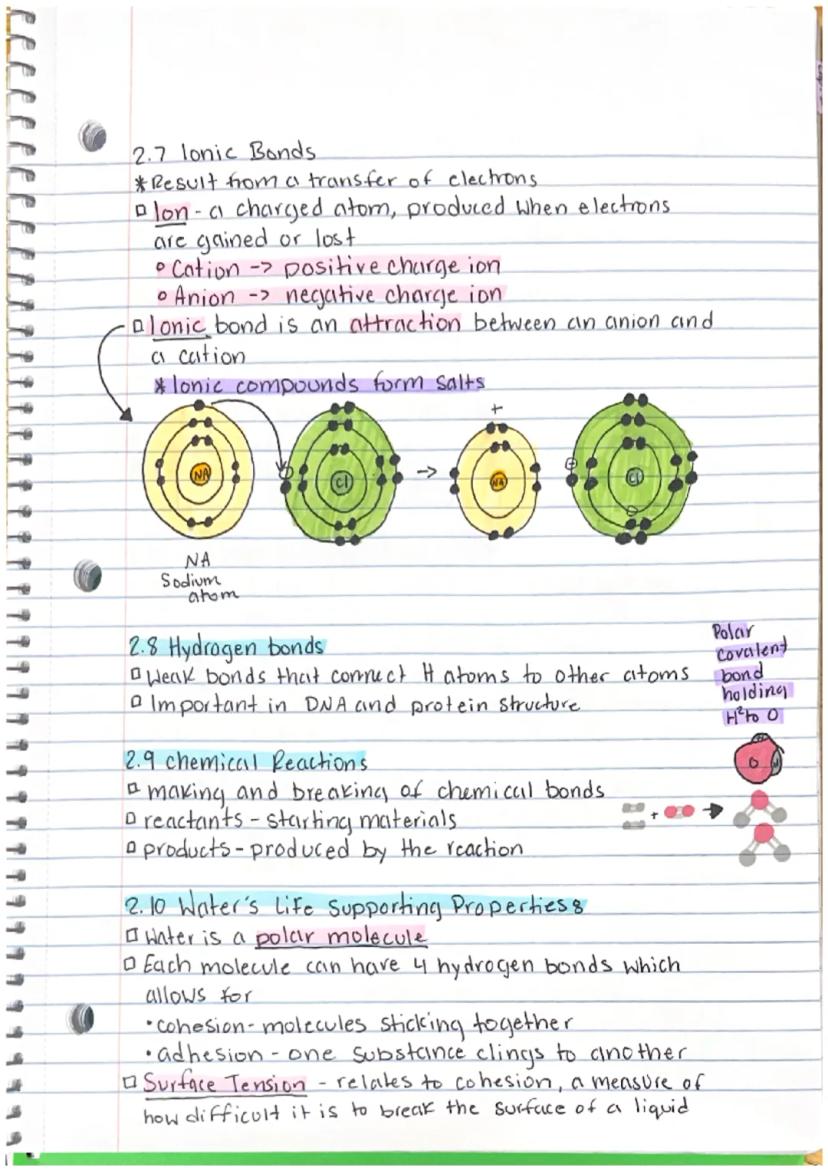 2.7 Ionic Bonds
*Result from a transfer of electrons
Ion - a charged atom, produced when electrons
are gained or lost
Cation -> positive charge ion
Anion -> negative charge ion
Ionic bond is an attraction between an anion and
a cation
* Ionic compounds form salts
+
NA
Cl
→
NA
Cl
NA
Sodium
atom
2.8 Hydrogen bonds
Weak bonds that connect H atoms to other atoms
Important in DNA and protein structure
Polar
covalent
bond
holding
H² to O
O
2.9 chemical Reactions
making and breaking of chemical bonds
reactants - starting materials
products - produced by the reaction
+
2.10 Water's Life Supporting Properties
Water is a polar molecule
Each molecule can have 4 hydrogen bonds which
allows for
• cohesion - molecules sticking together
• adhesion - one substance clings to another
Surface Tension - relates to cohesion, a measure of
how difficult it is to break the surface of a liquid